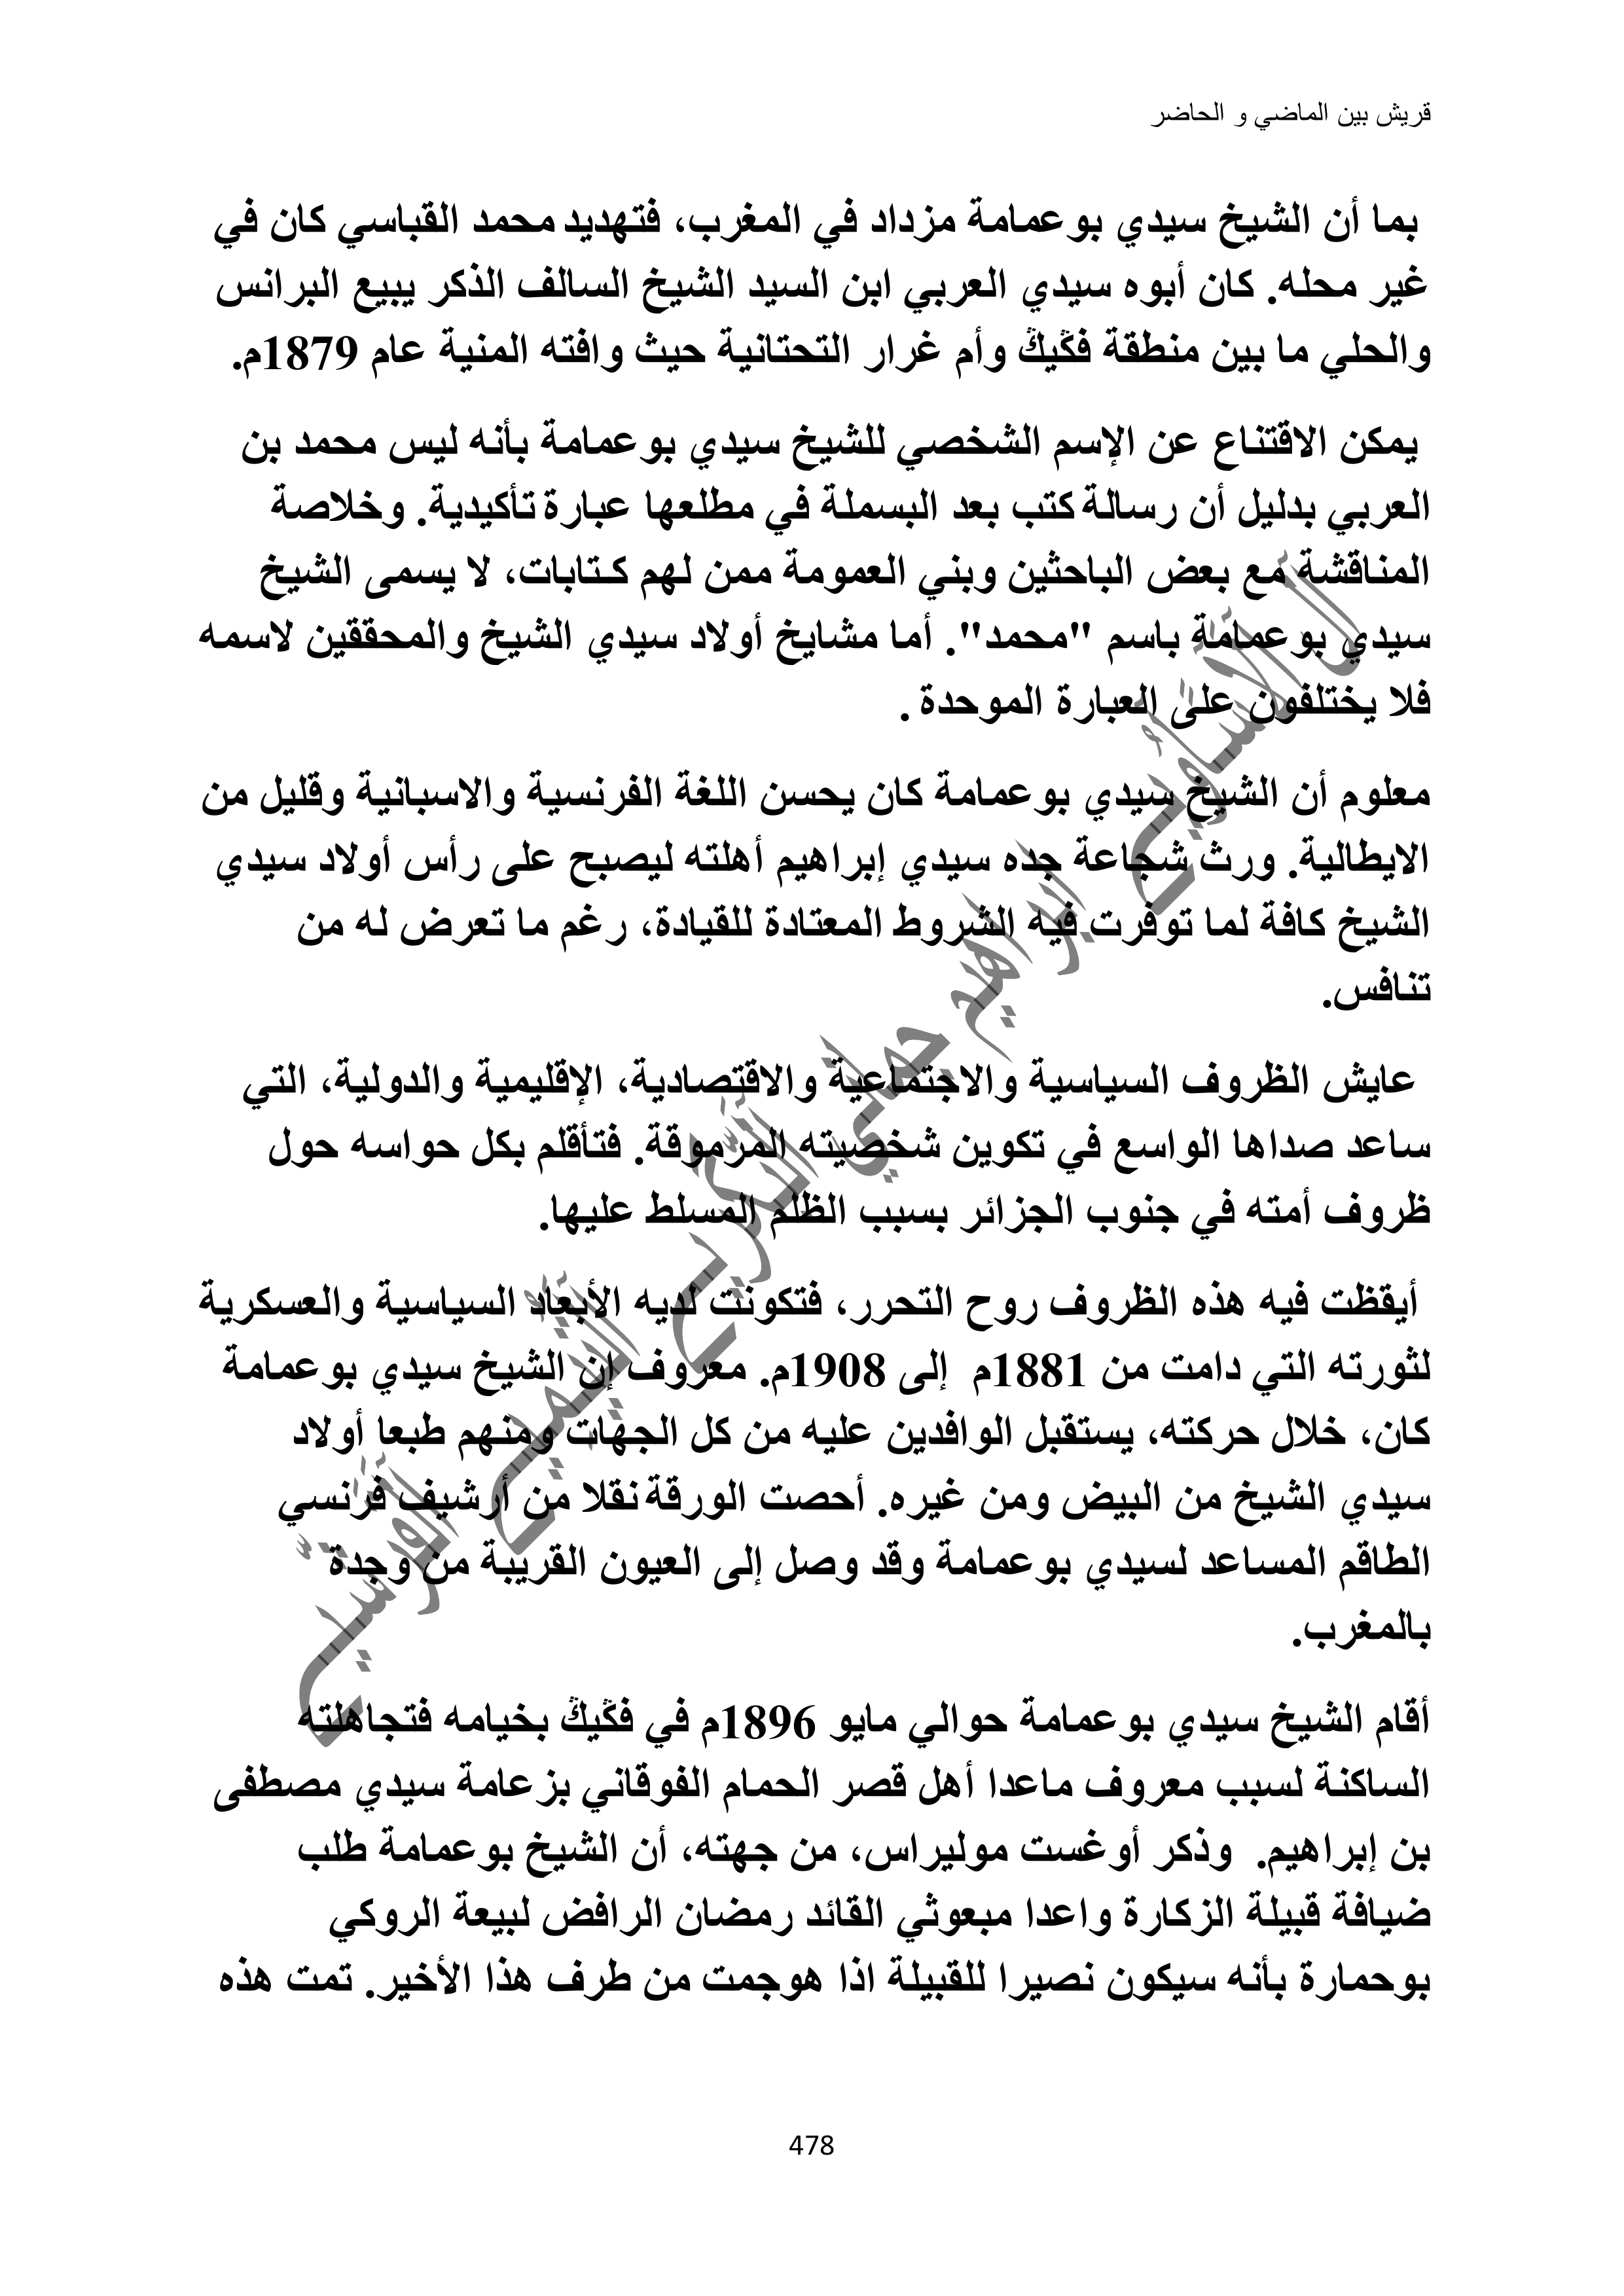 قريش بين الماضي و الحاضر
بما أن الشيخ سيدي بوعمامة مزداد في المغرب، فتهديد محمد القباسي كان في
غير محله. كان أبوه سيدي العربي ابن السيد الشيخ السالف الذكر يبيع البرانس
والحلي ما بين منطقة فݣيݣ وأم غرار التحتانية حيث وافته المنية عام 1879م.
يمكن الاقتناع عن الإسم الشخصي للشيخ سيدي بوعمامة بأنه ليس محمد بن
العربي بدليل أن رسالة كتب بعد البسملة في مطلعها عبارة تأكيدية. وخلاصة
المناقشة مع بعض الباحثين وبني العمومة ممن لهم كـتابات، لا يسمى الشيخ
سيدي بوعمامة باسم "محمد". أما مشايخ أولاد سيدي الشيخ والمحققين لاسمه
فلا يختلفون على العبارة الموحدة .
معلوم أن الشيخ سيدي بوعمامة كان يحسن اللغة الفرنسية والاسبانية وقليل من
الايطالية. ورث شجاعة جده سيدي إبراهيم أهلته ليصبح على رأس أولاد سيدي
الشيخ كافة لما توفرت فيه الشروط المعتادة للقيادة، رغم ما تعرض له من
تنافس.
عايش الظروف السياسية والاجتماعية والاقتصادية، الإقليمية والدولية، التي
ساعد صداها الواسع في تكوين شخصيته المرموقة. فتأقلم بكل حواسه حول
ظروف أمته في جنوب الجزائر بسبب الظلم المسلط عليها.
أيقظت فيه هذه الظروف روح التحرر، فتكونت لديه الأبعاد السياسية والعسكرية
لثورته التي دامت من 1881م إلى 1908م. معروف إن الشيخ سيدي بوعمامة
كان، خلال حركته، يستقبل الوافدين عليه من كل الجهات ومنهم طبعا أولاد
سيدي الشيخ من البيض ومن غيره. أحصت الورقة نقلا من أرشيف فرنسي
الطاقم المساعد لسيدي بوعمامة وقد وصل إلى العيون القريبة من وجدة
بالمغرب.
أقام الشيخ سيدي بوعمامة حوالي مايو 1896م في فݣيݣ بخيامه فتجاهلته
الساكنة لسبب معروف ماعدا أهل قصر الحمام الفوقاني بزعامة سيدي مصطفى
بن إبراهيم. وذكر أوغست موليراس، من جهته، أن الشيخ بوعمامة طلب
ضيافة قبيلة الزكارة واعدا مبعوثي القائد رمضان الرافض لبيعة الروكي
بوحمارة بأنه سيكون نصيرا للقبيلة اذا هوجمت من طرف هذا الأخير. تمت هذه
478